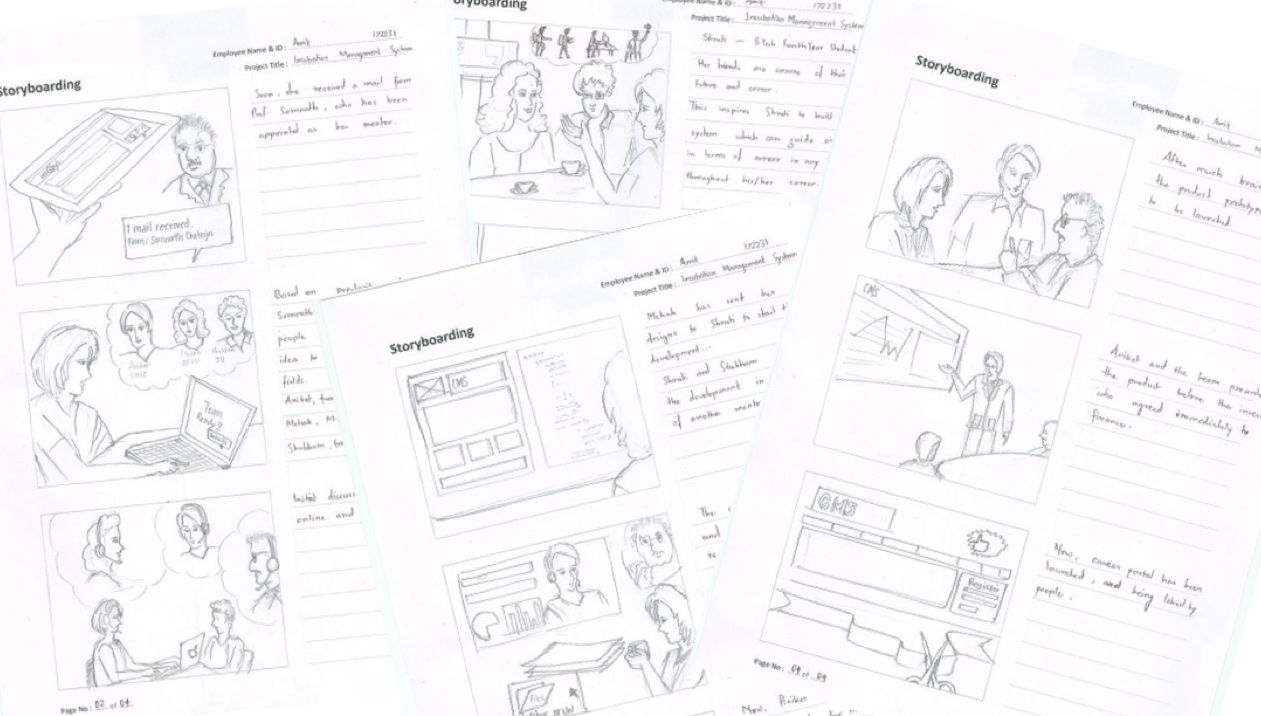 Storyboarding
Employee Name & ID : Amit 172231
Project Title : Incubation Management System
Soon, she received a mail from
Prof. Somnath, who has been
appointed as her mentor.
1 mail received.
From: Somnath Chaterjee
Based on
Somnath
people
idea to
fields.
Aniket, from
Mehak, M.
Shubham, for
Aniket
Mehak
Shubham
Team
Ready!!
Initial discus
online and
Page No : 02 of 04
oryboarding
Employee Name & ID : Amit 172231
Project Title : Incubation Management System
Shruti - BTech Fourth Year Student
Her friends are unsure of their
future and career.
This inspires Shruti to build
system which can guide
in terms of career in any
throughout his/her career.
Storyboarding
Employee Name & ID : Amit 172231
Project Title : Incubation Management System
CMS
Mehak has sent her
designs to Shruti to start
development...
Shruti and Shubham
the development in
of another mento
The
and
is
Files
Now, Aniket
Storyboarding
Employee Name & ID : Amit
Project Title : Incubation M
After much brain
the product prototype
to be launched.
CMS
Aniket and the team present
the product before the inves
who agreed immediately to
finance.
CMS
Register
Now, career portal has been
launched, and being liked by
people.
Page No : 04 of 04